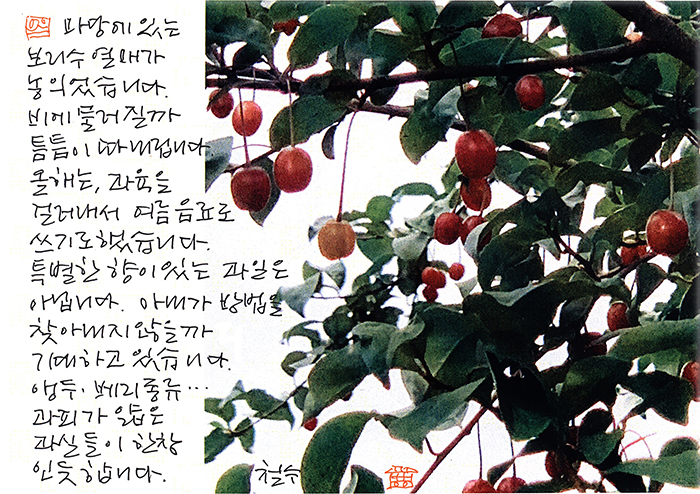 마당에 있는
보리수 열매가
농익었습니다.
비에 물러질까
틈틈이 따내립니다.
올해는, 과육을
걸러내서 여름음료로
쓰기로했습니다.
특별한 향이있는 과일은
아닙니다. 아내가 방법을
찾아내지않을까
기대하고 있습니다.
앵두, 베리종류...
과피가 얇은
과실들이 한창
인듯합니다.
철수